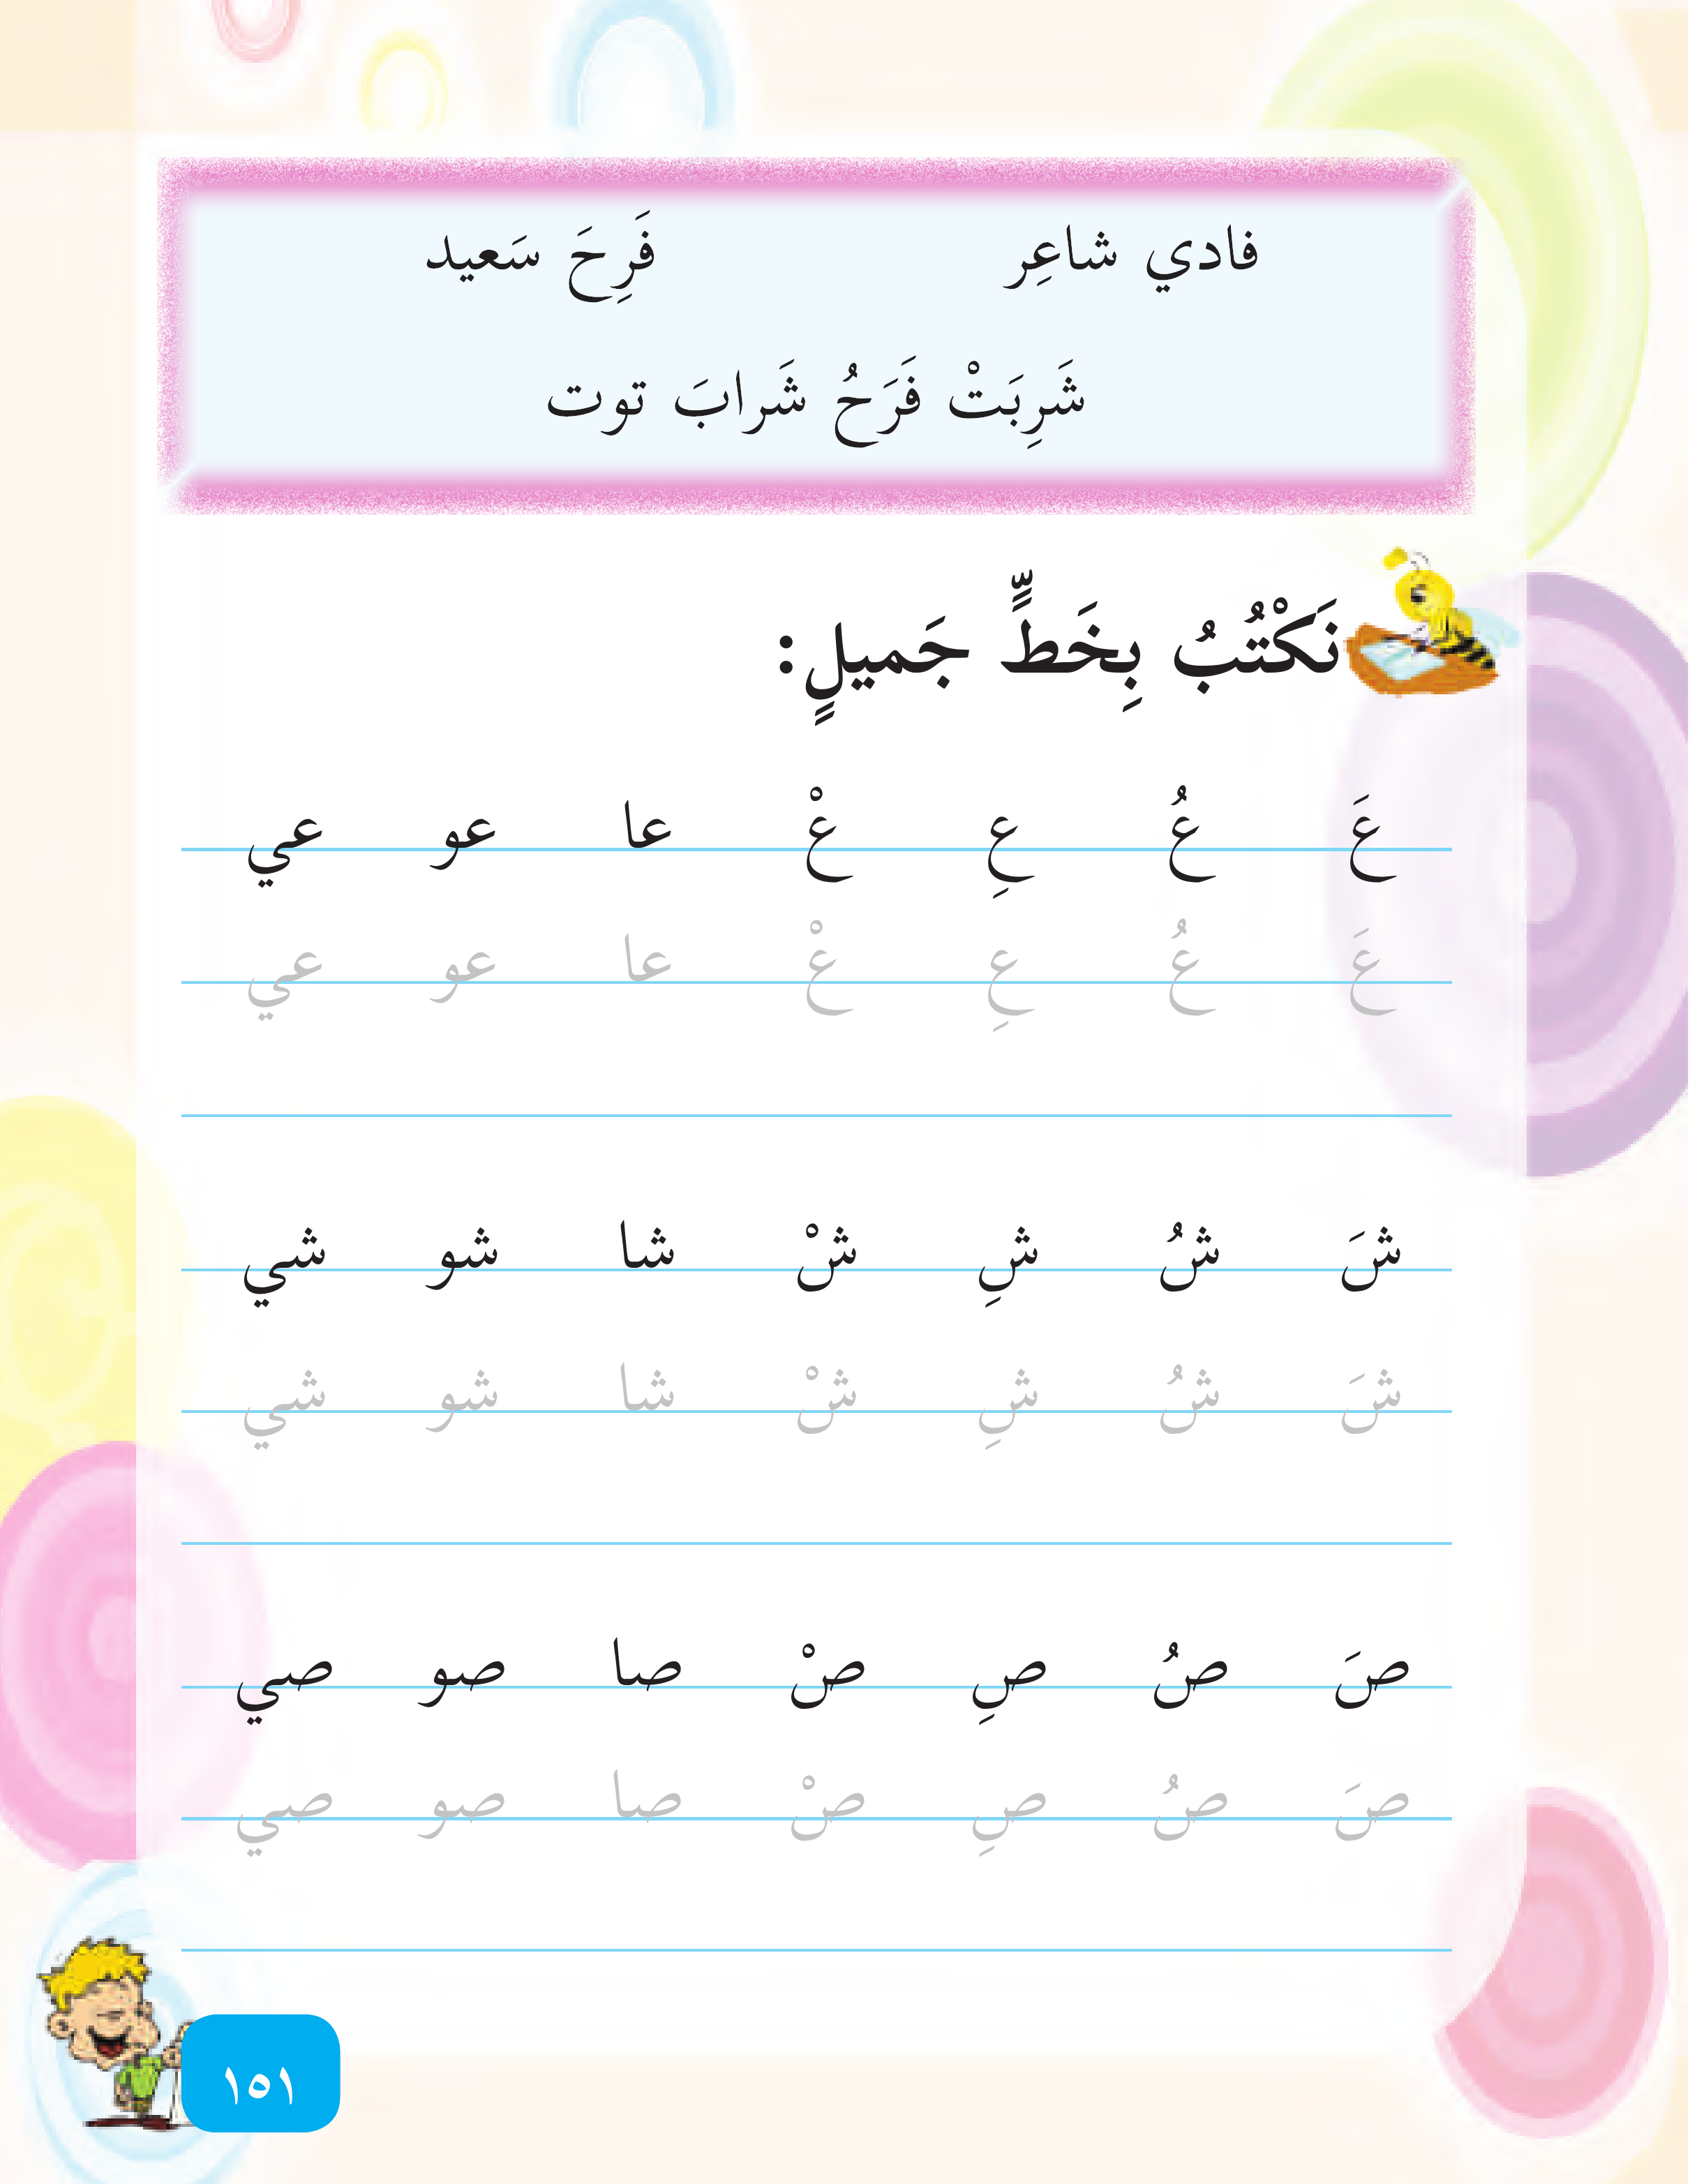 فادي شاعِر فَرِحَ سَعيد
شَرِبَتْ فَرَحُ شَرابَ توت
نَكْتُبُ بِخَطٍّ جَميلٍ:
عَ عُ عِ عْ عا عو عي
عَ عُ عِ عْ عا عو عي
شَ شُ شِ شْ شا شو شي
شَ شُ شِ شْ شا شو شي
صَ صُ صِ صْ صا صو صي
صَ صُ صِ صْ صا صو صي
١٥١